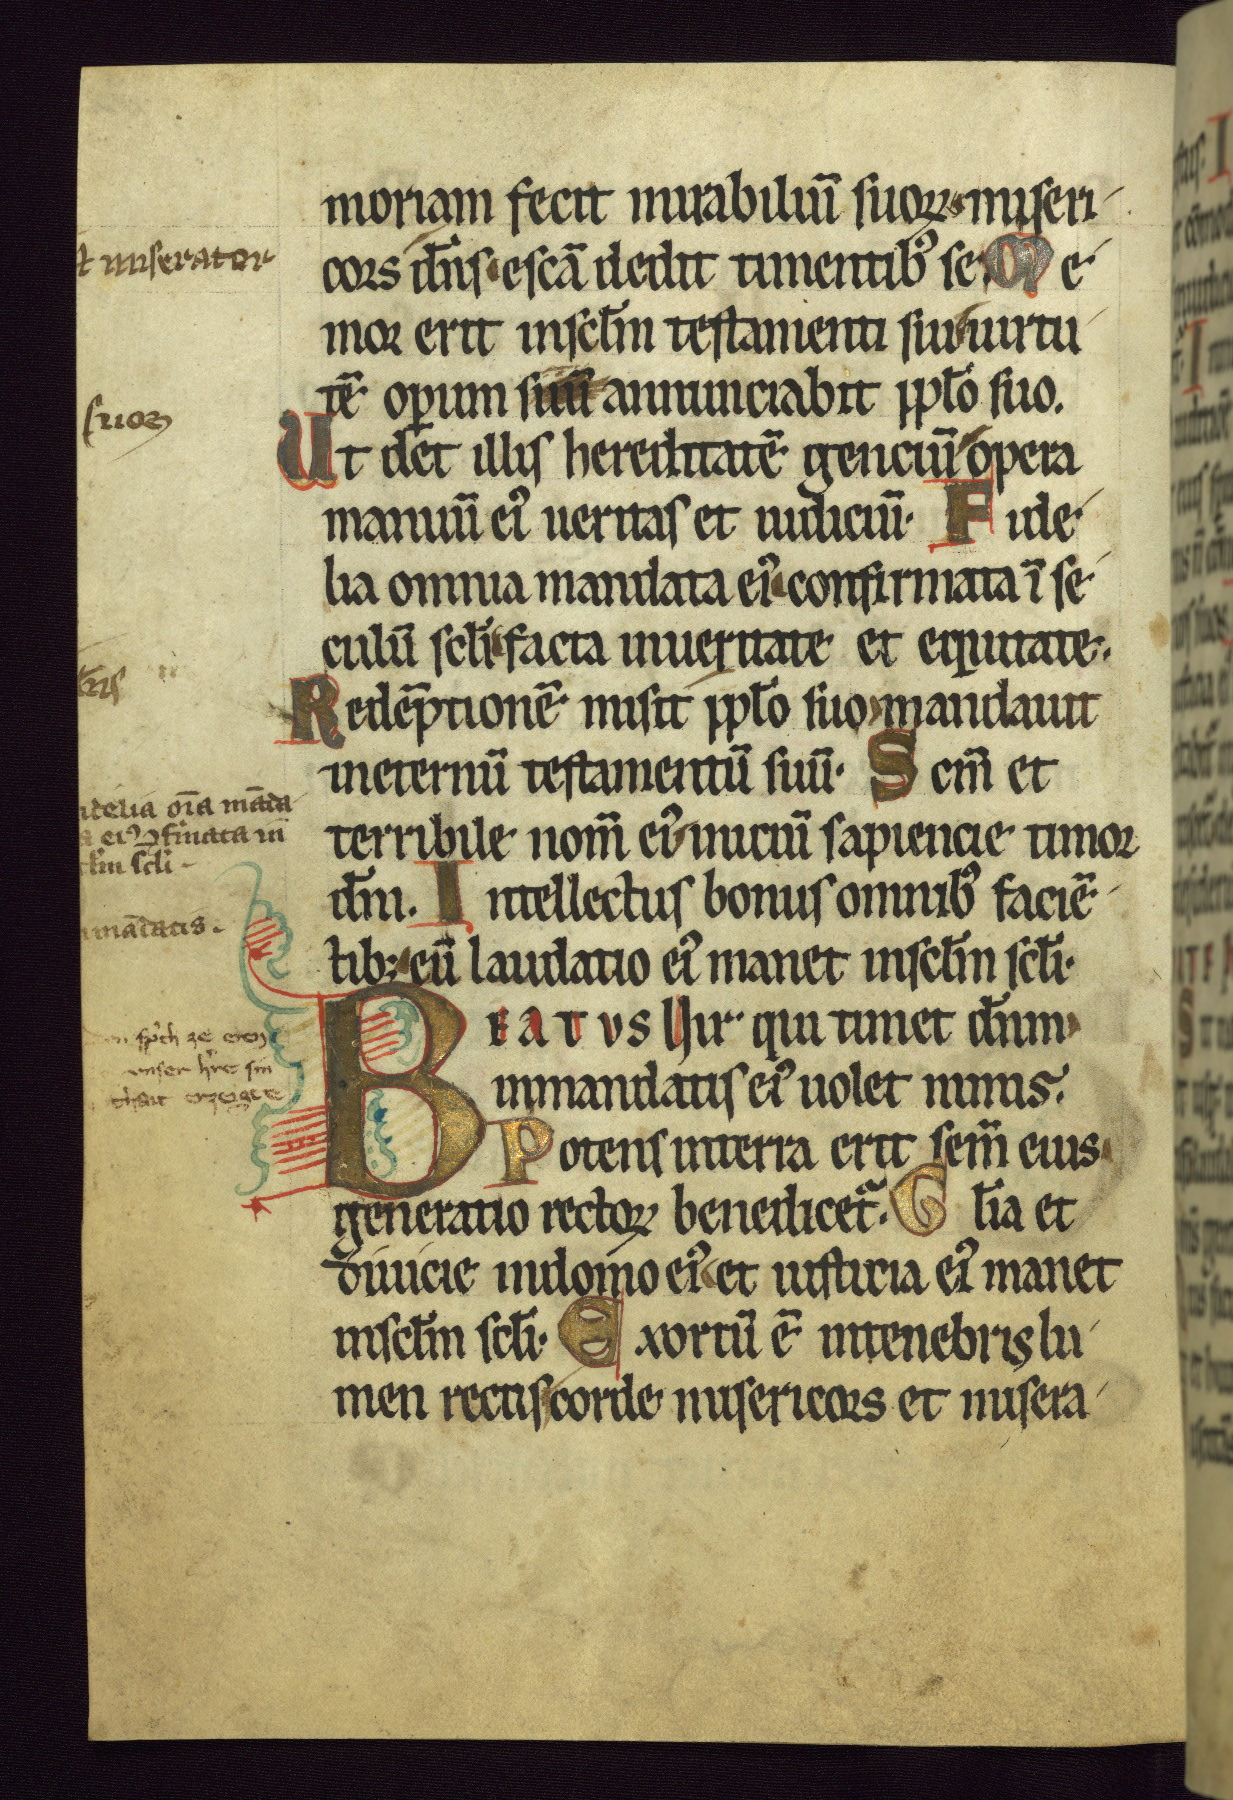 moriam fecit mirabiliū suoꝝ· miseri
cors dn̄s· escā dedit timentibꝰ se· Me
mor erit inscl̄m testamenti sui· uirtu
tē operum suū annunciabit ppl̄o suo.
Ut det illis hereditatē genciū· opera
manuū eiꝰ ueritas et iudiciū· Fide
lia omnia mandata eiꝰ· confirmata ī se
culū scl̄i· facta inueritate et equitate·
Redēptionē misit ppl̄o suo· mandauit
ineternū testamentū suū· Scm̄ et
terribile nom̄ eiꝰ· iniciū sapiencie timor
dn̄i. Intellectus bonus omnibꝰ faciē
tib; eū laudatio eiꝰ manet inscl̄m scl̄i·
BEATVS Uir qui timet dn̄m·
inmandatis eiꝰ uolet nimis.
Potens interra erit sem̄ eius
generatio rectoꝝ benedicet̄· Gl̄ia et
diuicie indomo eiꝰ· et iusticia eiꝰ manet
inscl̄m scl̄i· Exortū ē intenebris lu
men rectis corde misericors et misera
miserator
suoꝝ
idelia oīa māda
eiꝰ ꝯfirmata in
scl̄i
mādatis.